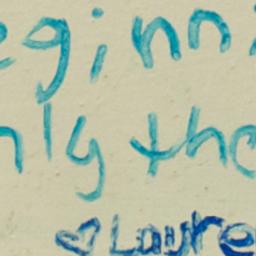 eginni
nly the
♡ Laure